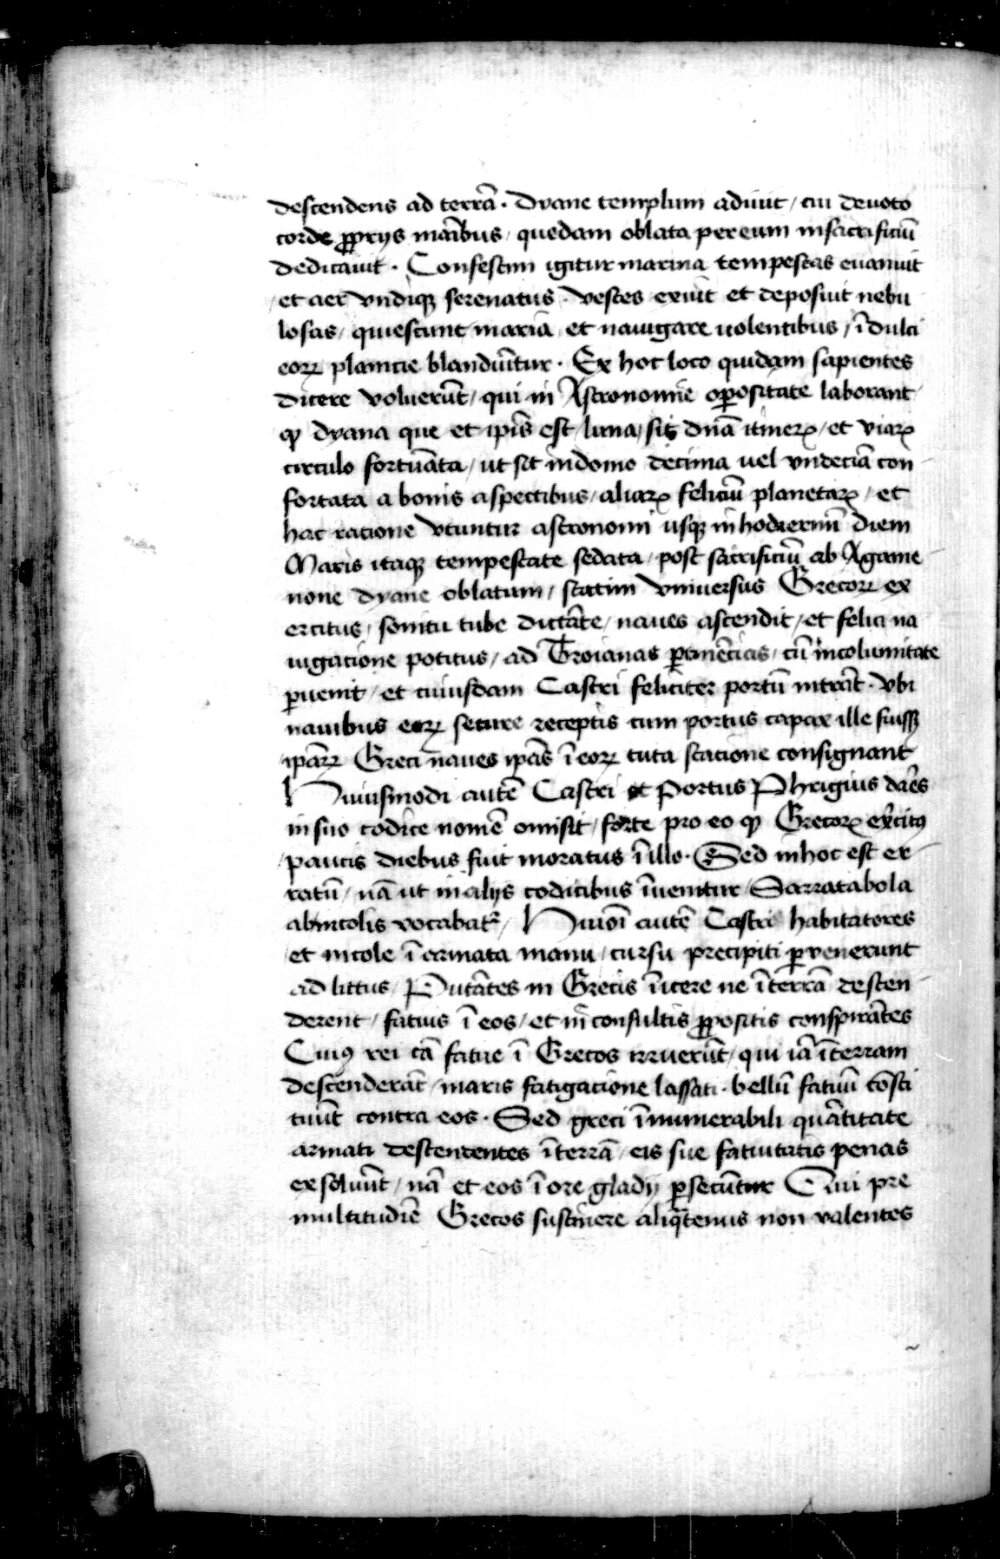 descendens ad terrā · Dyane templum adiuit / cui deuoto
corde ꝓprijs manibus / quedam oblata per eum in sacrificiū
dedicauit · Confestim igitur marina tempestas euanuit
/ et aer vndiqꝫ serenatus · vestes exuit et deposuit nebu
losas / quiescunt maria / et nauigare uolentibus / ī dulci
eoꝝ planicie blandiūtur · Ex hoc loco quidam sapientes
dicere voluerūt / qui in Astronomie oꝑositate laborant
ꝙ dyana que et ip̄is est / luna / sit dn̄a itineꝝ / et viaꝝ
circulo fortunāta / ut sit in domo decima uel vndeciā con
fortata a bonis aspectibus / aliaꝝ feliciū planetaꝝ / et
hac racione vtuntur astronomi usqꝫ in hodiernū diem
Maris itaqꝫ tempestate sedata / post sacrificiū ab Agame
none dyane oblatum / statim vniuersus Grecoꝝ ex
ercitus / sonitu tube dictāte / naues ascendit / et felici na
uigacione potitus / ad Troianas ꝑtinēcias / cū incolumitate
ꝑuenit / et cuiusdam Castri feliciter portū intrāt · vbi
nauibus eoꝝ secure receptis cum portus capax ille fuissꝫ
ip̄aꝝ Greci naues ip̄as ī eoꝝ tuta stacione consignant
Huiusmodi autē Castri et Portus Phrigius darēs
in suo codice nomē omisit / forte pro eo ꝙ Grecoꝝ ex̄citꝰ
/ paucis diebus fuit moratus ī illo · Sed in hoc est er
ratū / nā ut in alijs codicibus īuenitur / Sarratabola
ab incolis vocabatᷣ / Huiōi autē Castri habitatores
et incole ī armata manu / cursu precipiti ꝑvenerunt
ad littus / Putātes in Grecis īicere ne ī terrā descen
derent / fatuis ī eos / et in consultis ꝓpositis conspirātes
Cuiꝰ rei cā fatue ī Grecos irruerūt / qui iā ī terram
descenderāt / maris fatigacione lassati · bellū fatuū cōsti
tuūt contra eos · Sed greci īnumerabili quātitate
armati descendentes ī terrā / eis sue fatuitatis penas
exsoluūt / nā et eos ī ore gladij ꝑsecūtur Qui pre
multitudiē Grecos sustinere aliqᷓtenus non valentes